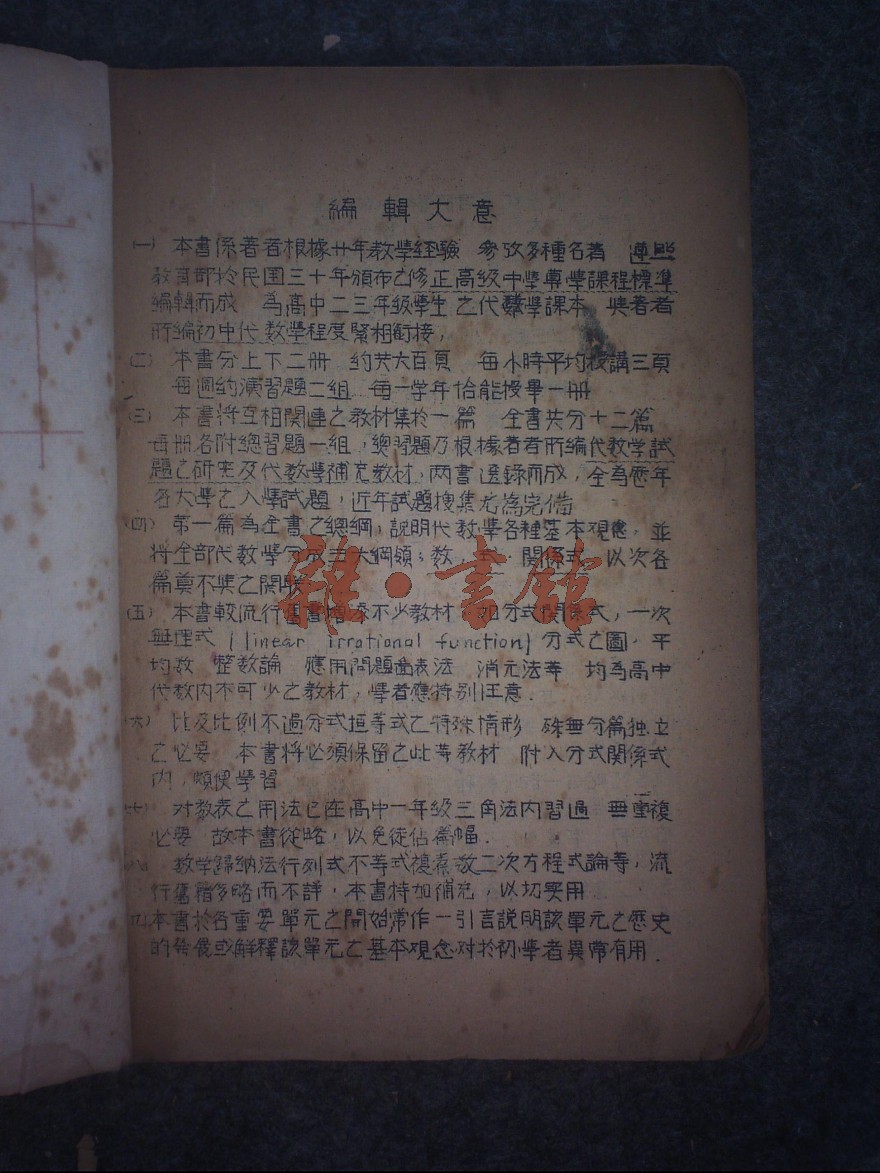 編輯大意
(一) 本書係著者根據廿年教學經驗 參攷多種名著 遵照
教育部於民国三十年頒布之修正高級中學數學課程標準
編輯而成 為高中二三年級學生之代數學課本 與著者
所編初中代数學程度緊相銜接,
(二) 本書分上下二冊 約共六百頁 每小時平均授講三頁
每週約演習題二組 每一学年恰能授畢一冊
(三) 本書将互相関連之教材集於一篇 全書共分十二篇
每冊各附總習題一組,總習題乃根據著者所編代数学試
題之研究及代数學補充教材,两書選錄而成,全為歷年
各大學之入學試題,近年試題搜集尤為完備
(四) 第一篇為全書之總綱,説明代数學各種基本观念,並
将全部代数學分成三大綱領;数 式 関係式 以次各
篇奠不
(五) 本書較流行舊書增添不少教材 如分式関係式,一次
無理式 (linear irrational function) 分式之圖,平
均数 整数論 應用問題畫表法 消元法等 均為高中
代数内不可少之教材,學者應特别注意.
(六) 比及比例不過分式恒等式之特殊情形 殊無分篇独立
之必要 本書将必須保留之此等教材 附入分式関係式
内,頗便學習
(七) 对数表之用法已在高中一年級三角法内習過 無重複
必要 故本書從略,以免徒佔篇幅.
(八) 数学歸纳法行列式不等式複素数二次方程式論等,流
行舊籍多略而不詳,本書特加補充,以切実用
(九) 本書於各重要單元之開始常作一引言説明該單元之歷史
的發展或解釋該單元之基本观念对於初學者異常有用.
雜·書館